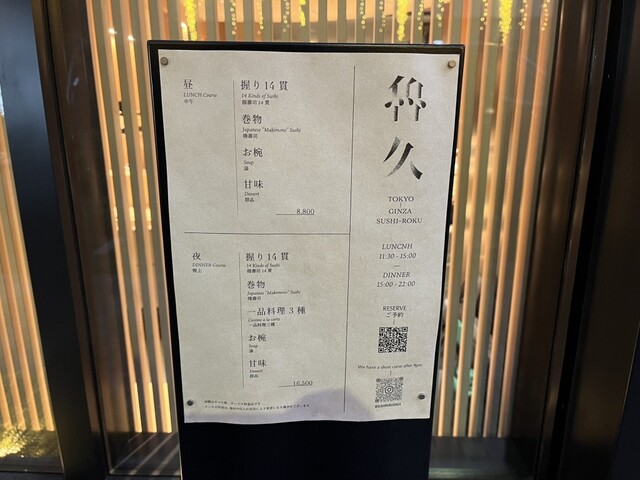 昼
LUNCH Course
中午
握り14貫
14 Kinds of Sushi
握壽司14貫
巻物
Japanese "Makimono" Sushi
捲壽司
お椀
Soup
湯
甘味
Dessert
甜品
8,800
夜
DINNER Course
晚上
握り14貫
14 Kinds of Sushi
握壽司14貫
巻物
Japanese "Makimono" Sushi
捲壽司
一品料理3種
Cuisine a la carte
一品料理三種
お椀
Soup
湯
甘味
Dessert
甜品
16,500
久
TOKYO
GINZA
SUSHI-ROKU
LUNCNH
11:30 - 15:00
DINNER
15:00 - 22:00
RESERVE
ご予約
We have a short curse after 9pm.